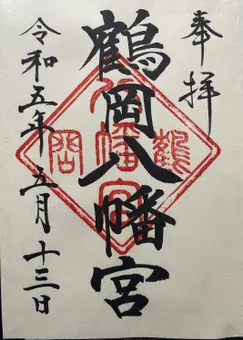 奉拝
鶴岡八幡宮
令和五年五月十三日
鶴
岡
八幡宮